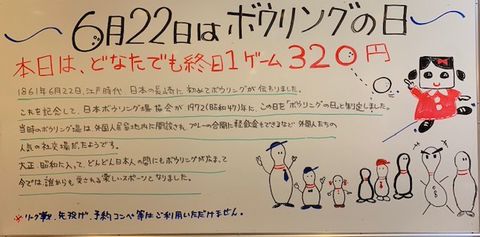 6月22日はボウリングの日
本日は、どなたでも終日1ゲーム320円
1861年6月22日、江戸時代、日本の長崎に初めてボウリングが伝わりました。
これを記念して、日本ボウリング場協会が1972(昭和47)年に、この日を"ボウリングの日"と制定しました。
当時のボウリング場は、外国人居留地内に開設され、プレーの合間に軽飲食もできるなど 外国人たちの
人気の社交場だったようです。
大正、昭和に入って、どんどん日本人の間にもボウリングが広まって
今では、誰からも愛される楽しいスポーツとなりました。
※リーグ戦、先投げ、予約コンペ等はご利用いただけません。